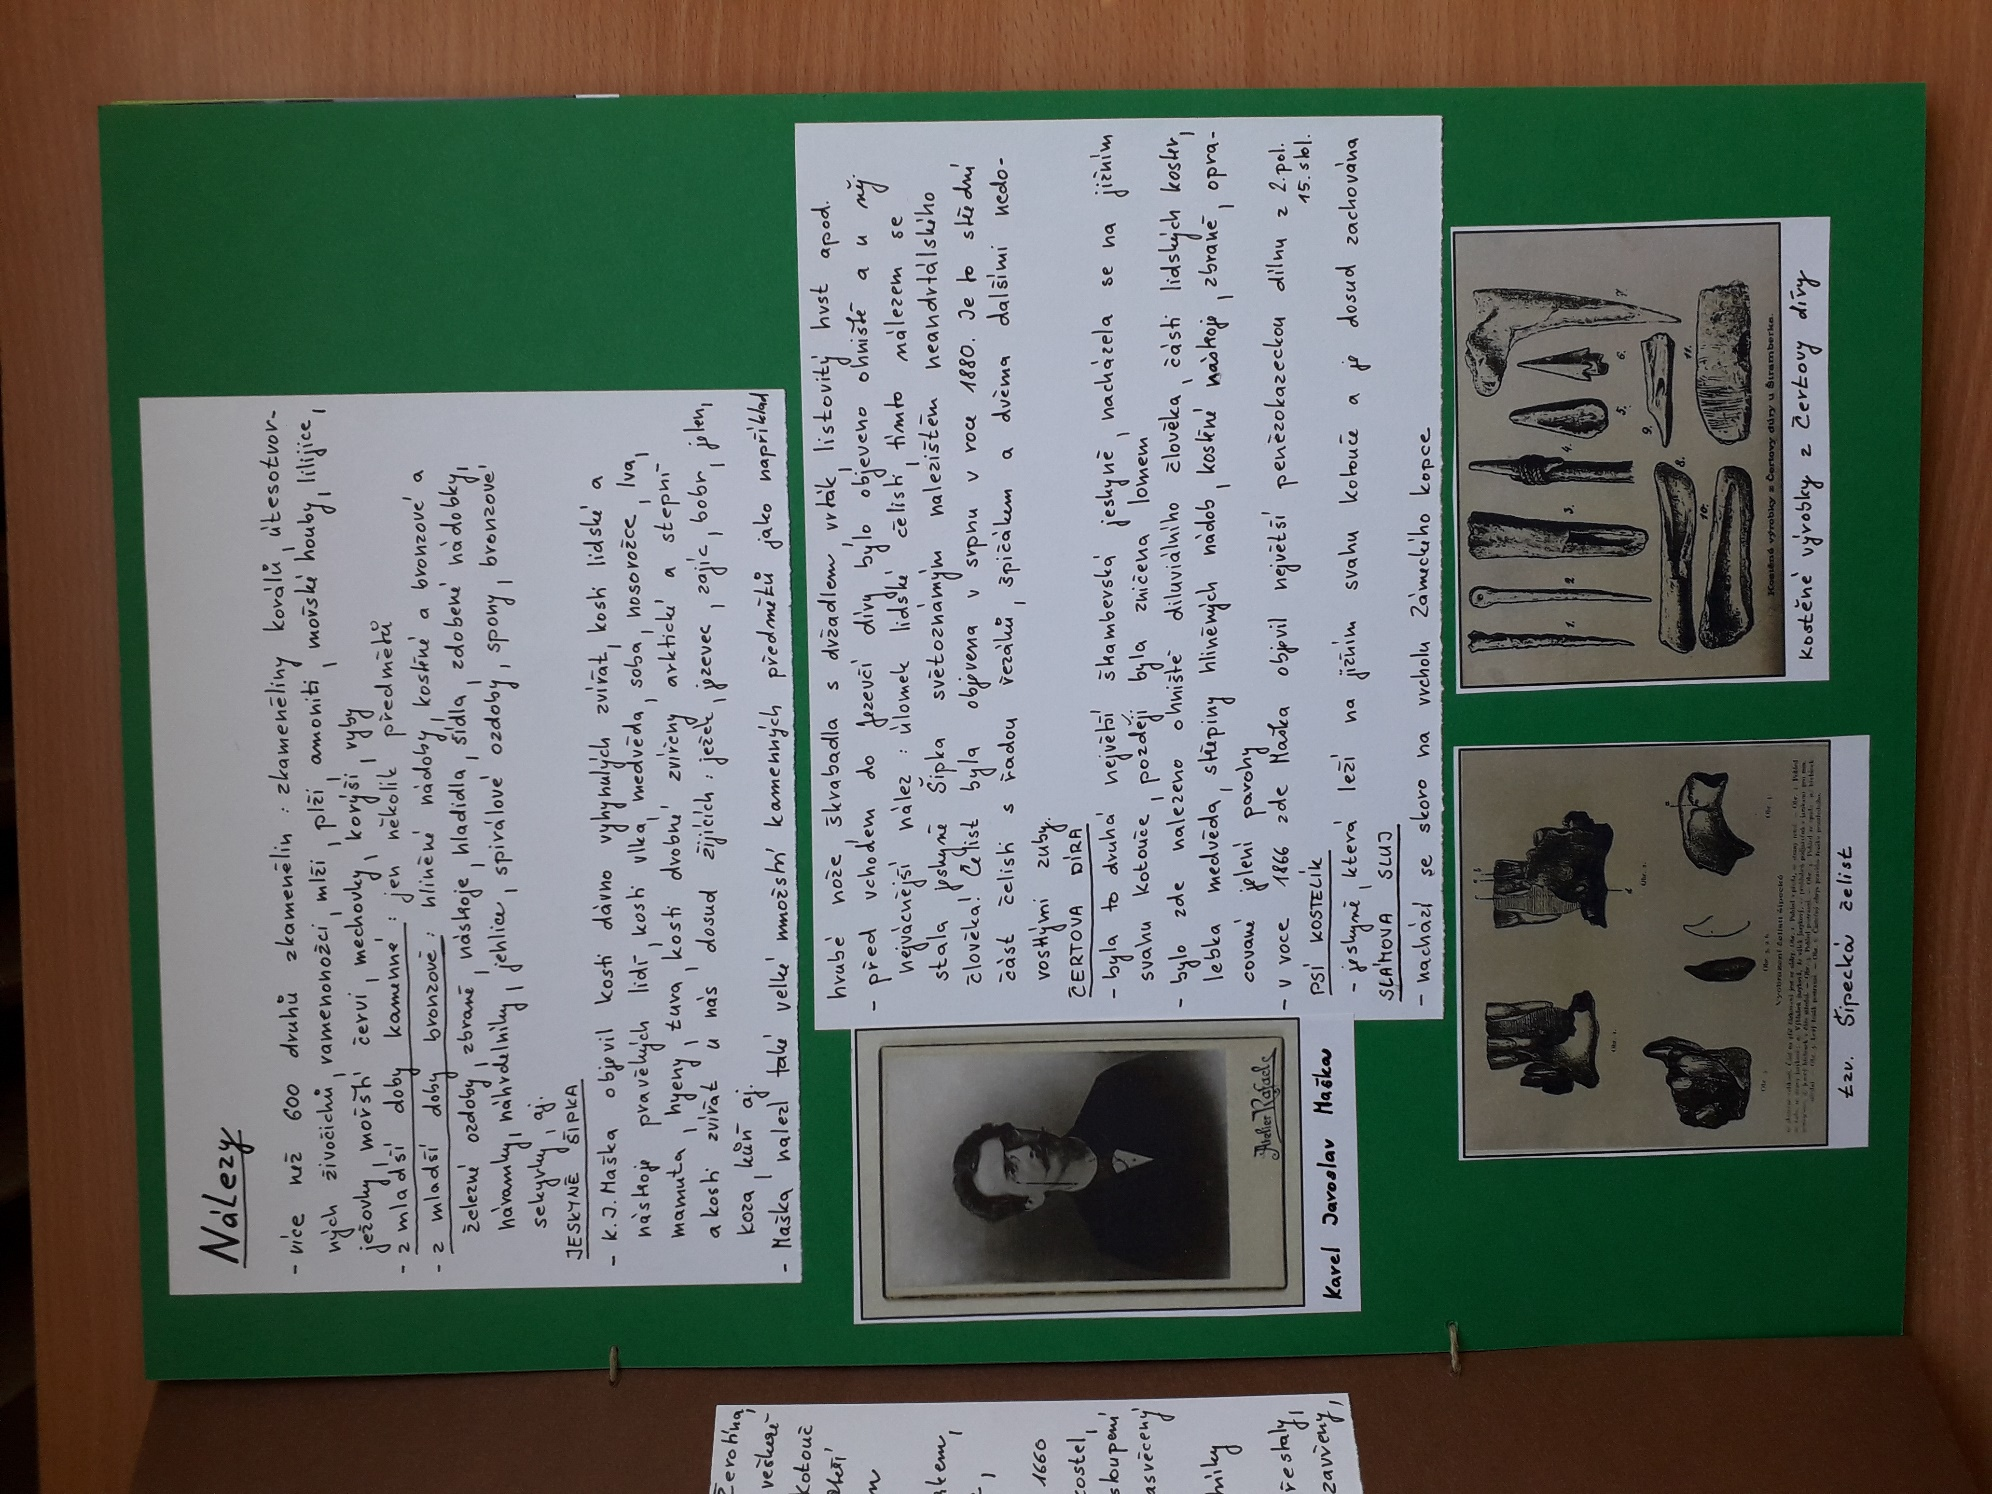 Nálezy
- více než 600 druhů zkamenělin : zkameněliny korálů, útesotvor-
ných živočichů, ramenonožci, mlži, plži, amoniti, mořské houby, lilijice,
ježovky, mořští červi, mechovky, korýši, ryby
- z mladší doby kamenné : jen několik předmětů
- z mladší doby bronzové : hliněné nádoby, kostěné a bronzové a
železné ozdoby, zbraně, nástroje, hladidla, šídla, zdobené nádobky,
náramky, náhrdelníky, jehlice, spirálové ozdoby, spony, bronzové
sekyrky, aj.
JESKYNĚ ŠIPKA
- K.J. Maška objevil kosti dávno vyhynulých zvířat, kosti lidské a
nástroje pravěkých lidí, kosti vlka, medvěda, soba, nosorožce, lva,
mamuta, hyeny, tura, kosti drobné zvířeny arktické a stepní
a kosti zvířat u nás dosud žijících : ježek, jezevec, zajíc, bobr, jelen,
koza, kůň aj.
- Maška nalezl také velké množství kamenných předmětů jako například
hrubé nože, škrabadla s držadlem, vrták, listovitý hrot apod.
- před vchodem do Jezevčí díry bylo objeveno ohniště a u něj
nejvzácnější nález : úlomek lidské čelisti, tímto nálezem se
stala jeskyně Šipka světoznámým nalezištěm neandrtálského
člověka! Čelist byla objevena v srpnu v roce 1880. Je to střední
část čelisti s řadou řezáků, špičákem a dvěma dalšími nedo-
rostlými zuby.
ČERTOVA DÍRA
- byla to druhá největší štramberská jeskyně, nacházela se na jižním
svahu Kotouče, později byla zničena lomem
- bylo zde nalezeno ohniště diluviálního člověka, části lidských koster,
lebka medvěda, střepiny hliněných nádob, kostěné nástroje, zbraně, opra-
cované jelení parohy
- v roce 1866 zde Maška objevil největší penězokazeckou dílnu z 2. pol.
15. stol.
PSÍ KOSTELÍK
- jeskyně, která leží na jižním svahu kotouče a je dosud zachována
SLÁMOVA SLUJ
- nachází se skoro na vrcholu Zámeckého kopce
Atelier Rafael
Karel Jaroslav Maška
Vyobrazení čelisti šipecké
tzv. Šipecká čelist
1.
2
3.
4.
5.
6.
7.
8.
9.
10.
11.
Kostěné výrobky z Čertovy díry u Štramberka.
kostěné výrobky z Čertovy díry
Žerotína,
veškeré
Kotouč
1660
kostel,
zavřeny,